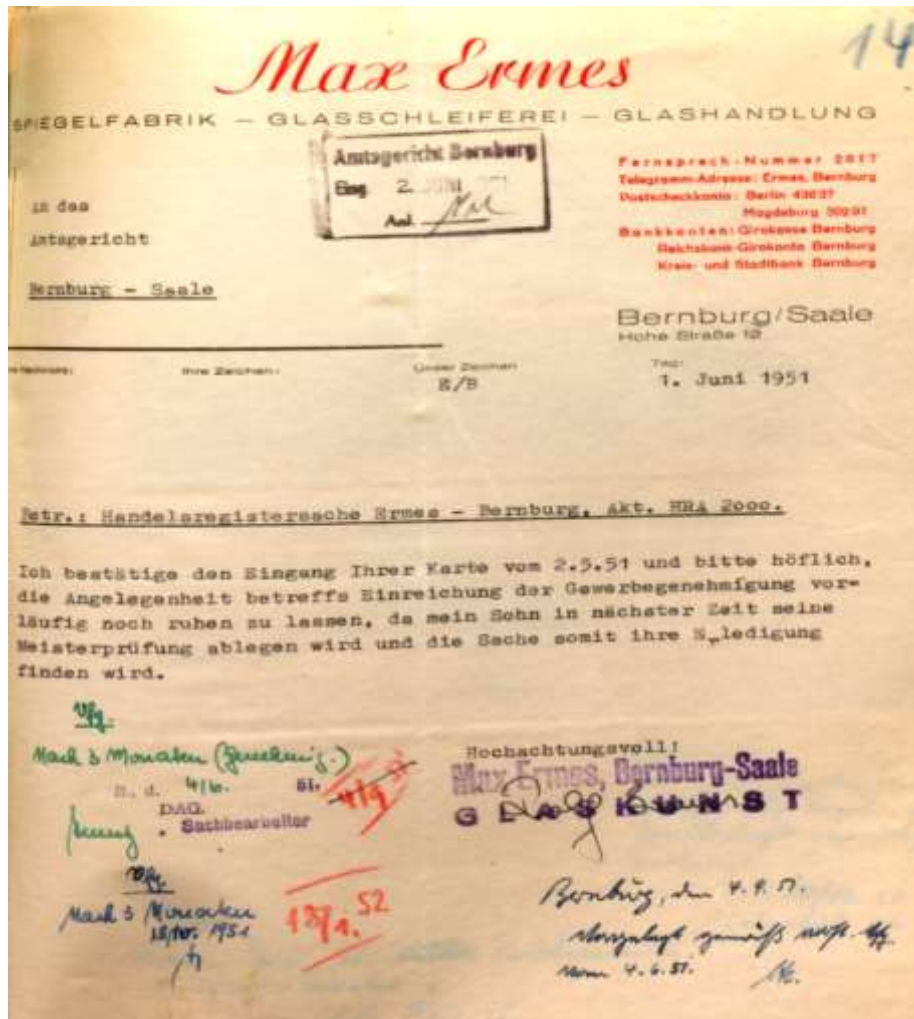 14
Max Ermes
SPIEGELFABRIK — GLASSCHLEIFEREI — GLASHANDLUNG
Amtsgericht Bernburg
Eing. 2. JUNI
Anl.
Fernsprech-Nummer 2817
Telegramm-Adresse: Ermes, Bernburg
Postscheckkonto: Berlin 43637
Magdeburg 30291
Bankkonten: Girokasse Bernburg
Reichsbank-Girokonto Bernburg
Kreis- und Stadtbank Bernburg
An das
Amtsgericht
Bernburg - Saale
Bernburg/Saale
Hohe Straße 12
Ihre Zeichen:
Unser Zeichen
E/B
Tag:
1. Juni 1951
Betr.: Handelsregistersache Ermes - Bernburg, Akt. HRA 2000.
Ich bestätige den Eingang Ihrer Karte vom 2.5.51 und bitte höflich,
die Angelegenheit betreffs Einreichung der Gewerbegenehmigung vor=
läufig noch ruhen zu lassen, da mein Sohn in nächster Zeit seine
Meisterprüfung ablegen wird und die Sache somit ihre E„ledigung
finden wird.
Vfg.
Nach 3 Monaten (Genehmig.)
B., d. 4/6. 51.
DAG.
Sachbearbeiter
4/9 51
Hochachtungsvoll!
Max Ermes, Bernburg-Saale
GLASKUNST
Vfg.
Nach 3 Monaten
1951
13/1. 52
Bernburg, den 4.9.51.
Vorgelegt gemäß
vom 4.6.51.